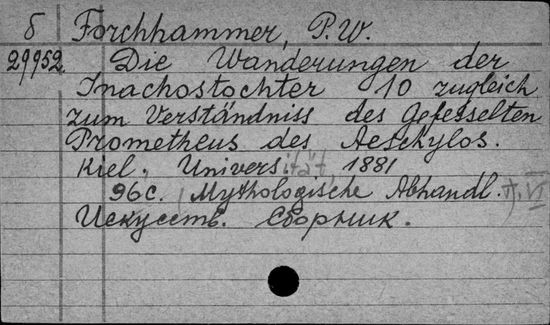 б Forchhammer, P.W.
29952. Die Wanderungen der
Inachostochter IO zugleich
zum Verständniss des Gefesselten
Prometheus des Aeschylos.
Kiel. Universität, 1881
96с. (Mythologische Abhandl.) т. VI
Искусств. Сборник.